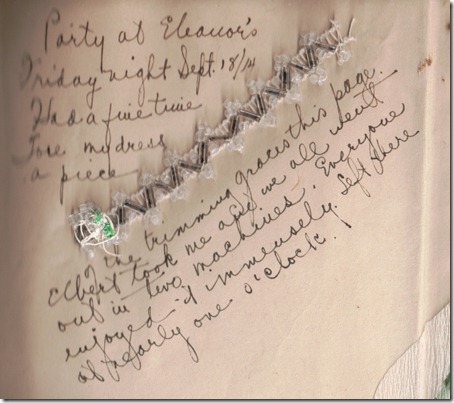 Party at Eleanor's
Friday night Sept. 18/14
Had a fine time
Tore my dress
a piece
of the trimming graces this page.
Elbert took me and we all went
out in two machines. Everyone
enjoyed it immensely. Left there
at nearly one o'clock.